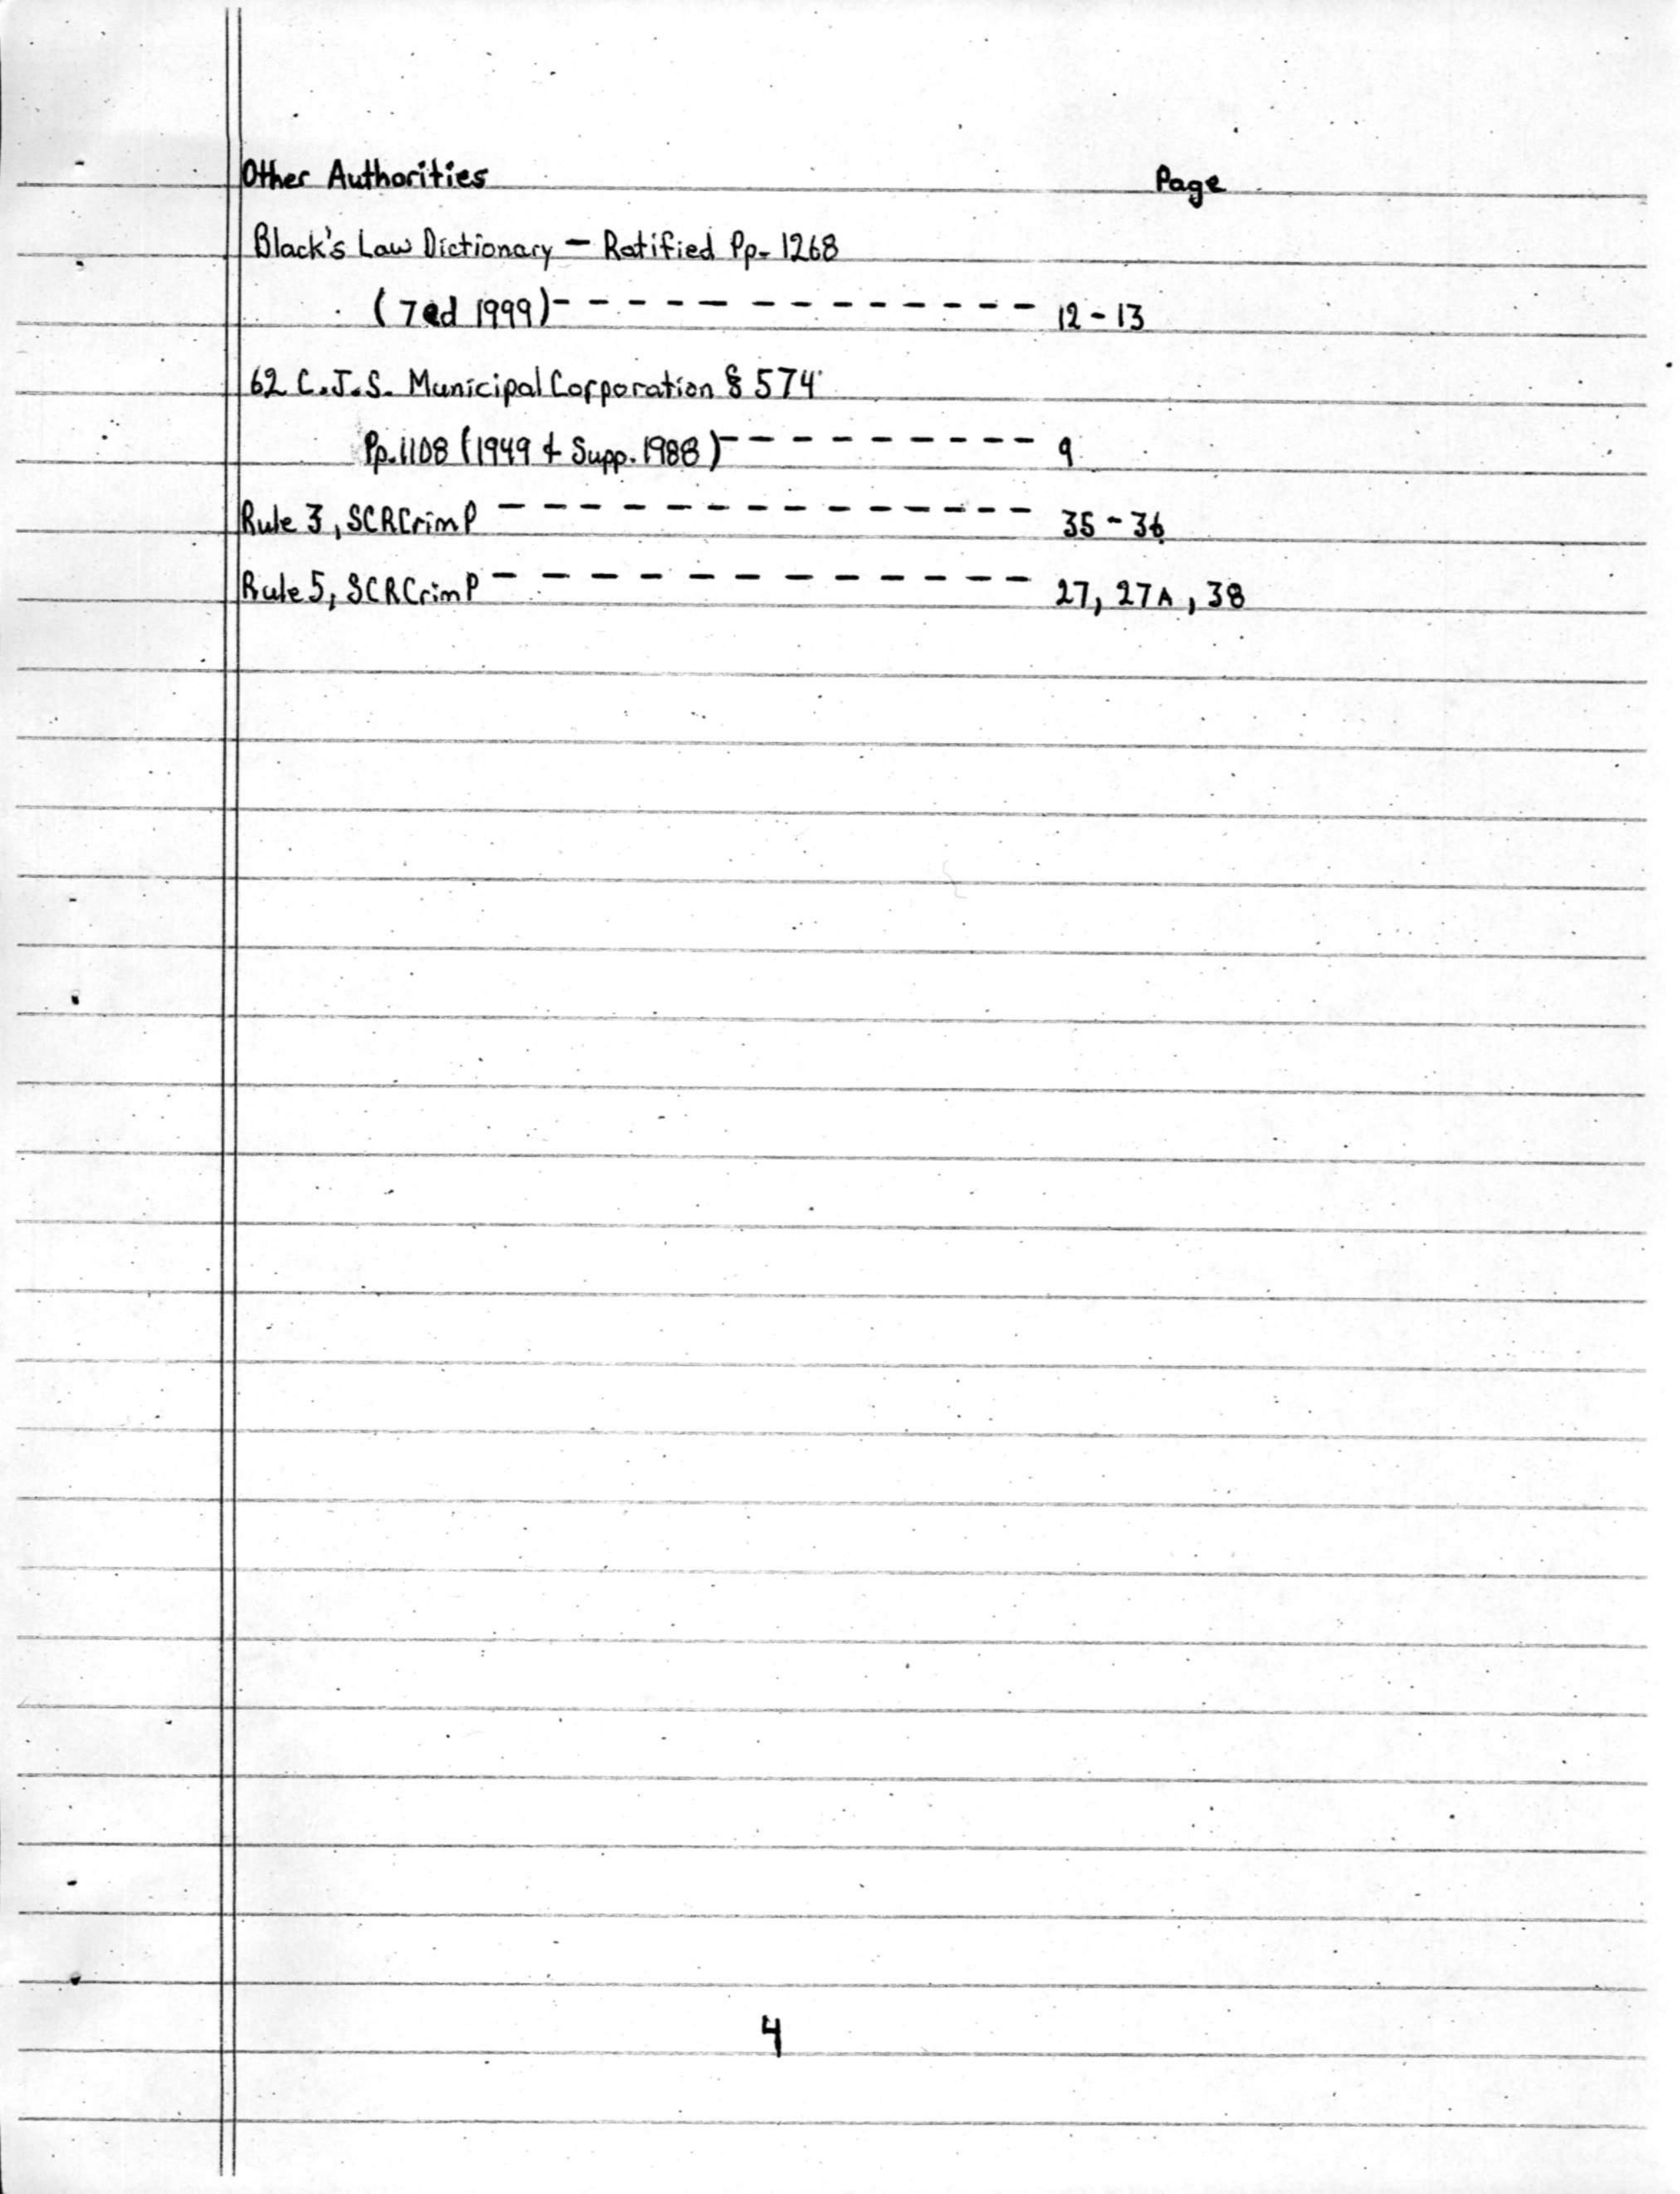 Other Authorities Page
Black's Law Dictionary - Ratified Pp. 1268
(7ed 1999) - - - - - - - - - - - - - 12-13
62 C.J.S. Municipal Corporation § 574
Pp. 1108 (1949 & Supp. 1988) - - - - - - - - - - 9
Rule 3, SCRCrimP - - - - - - - - - - - - - - 35-36
Rule 5, SCRCrimP - - - - - - - - - - - - 27, 27A, 38
4